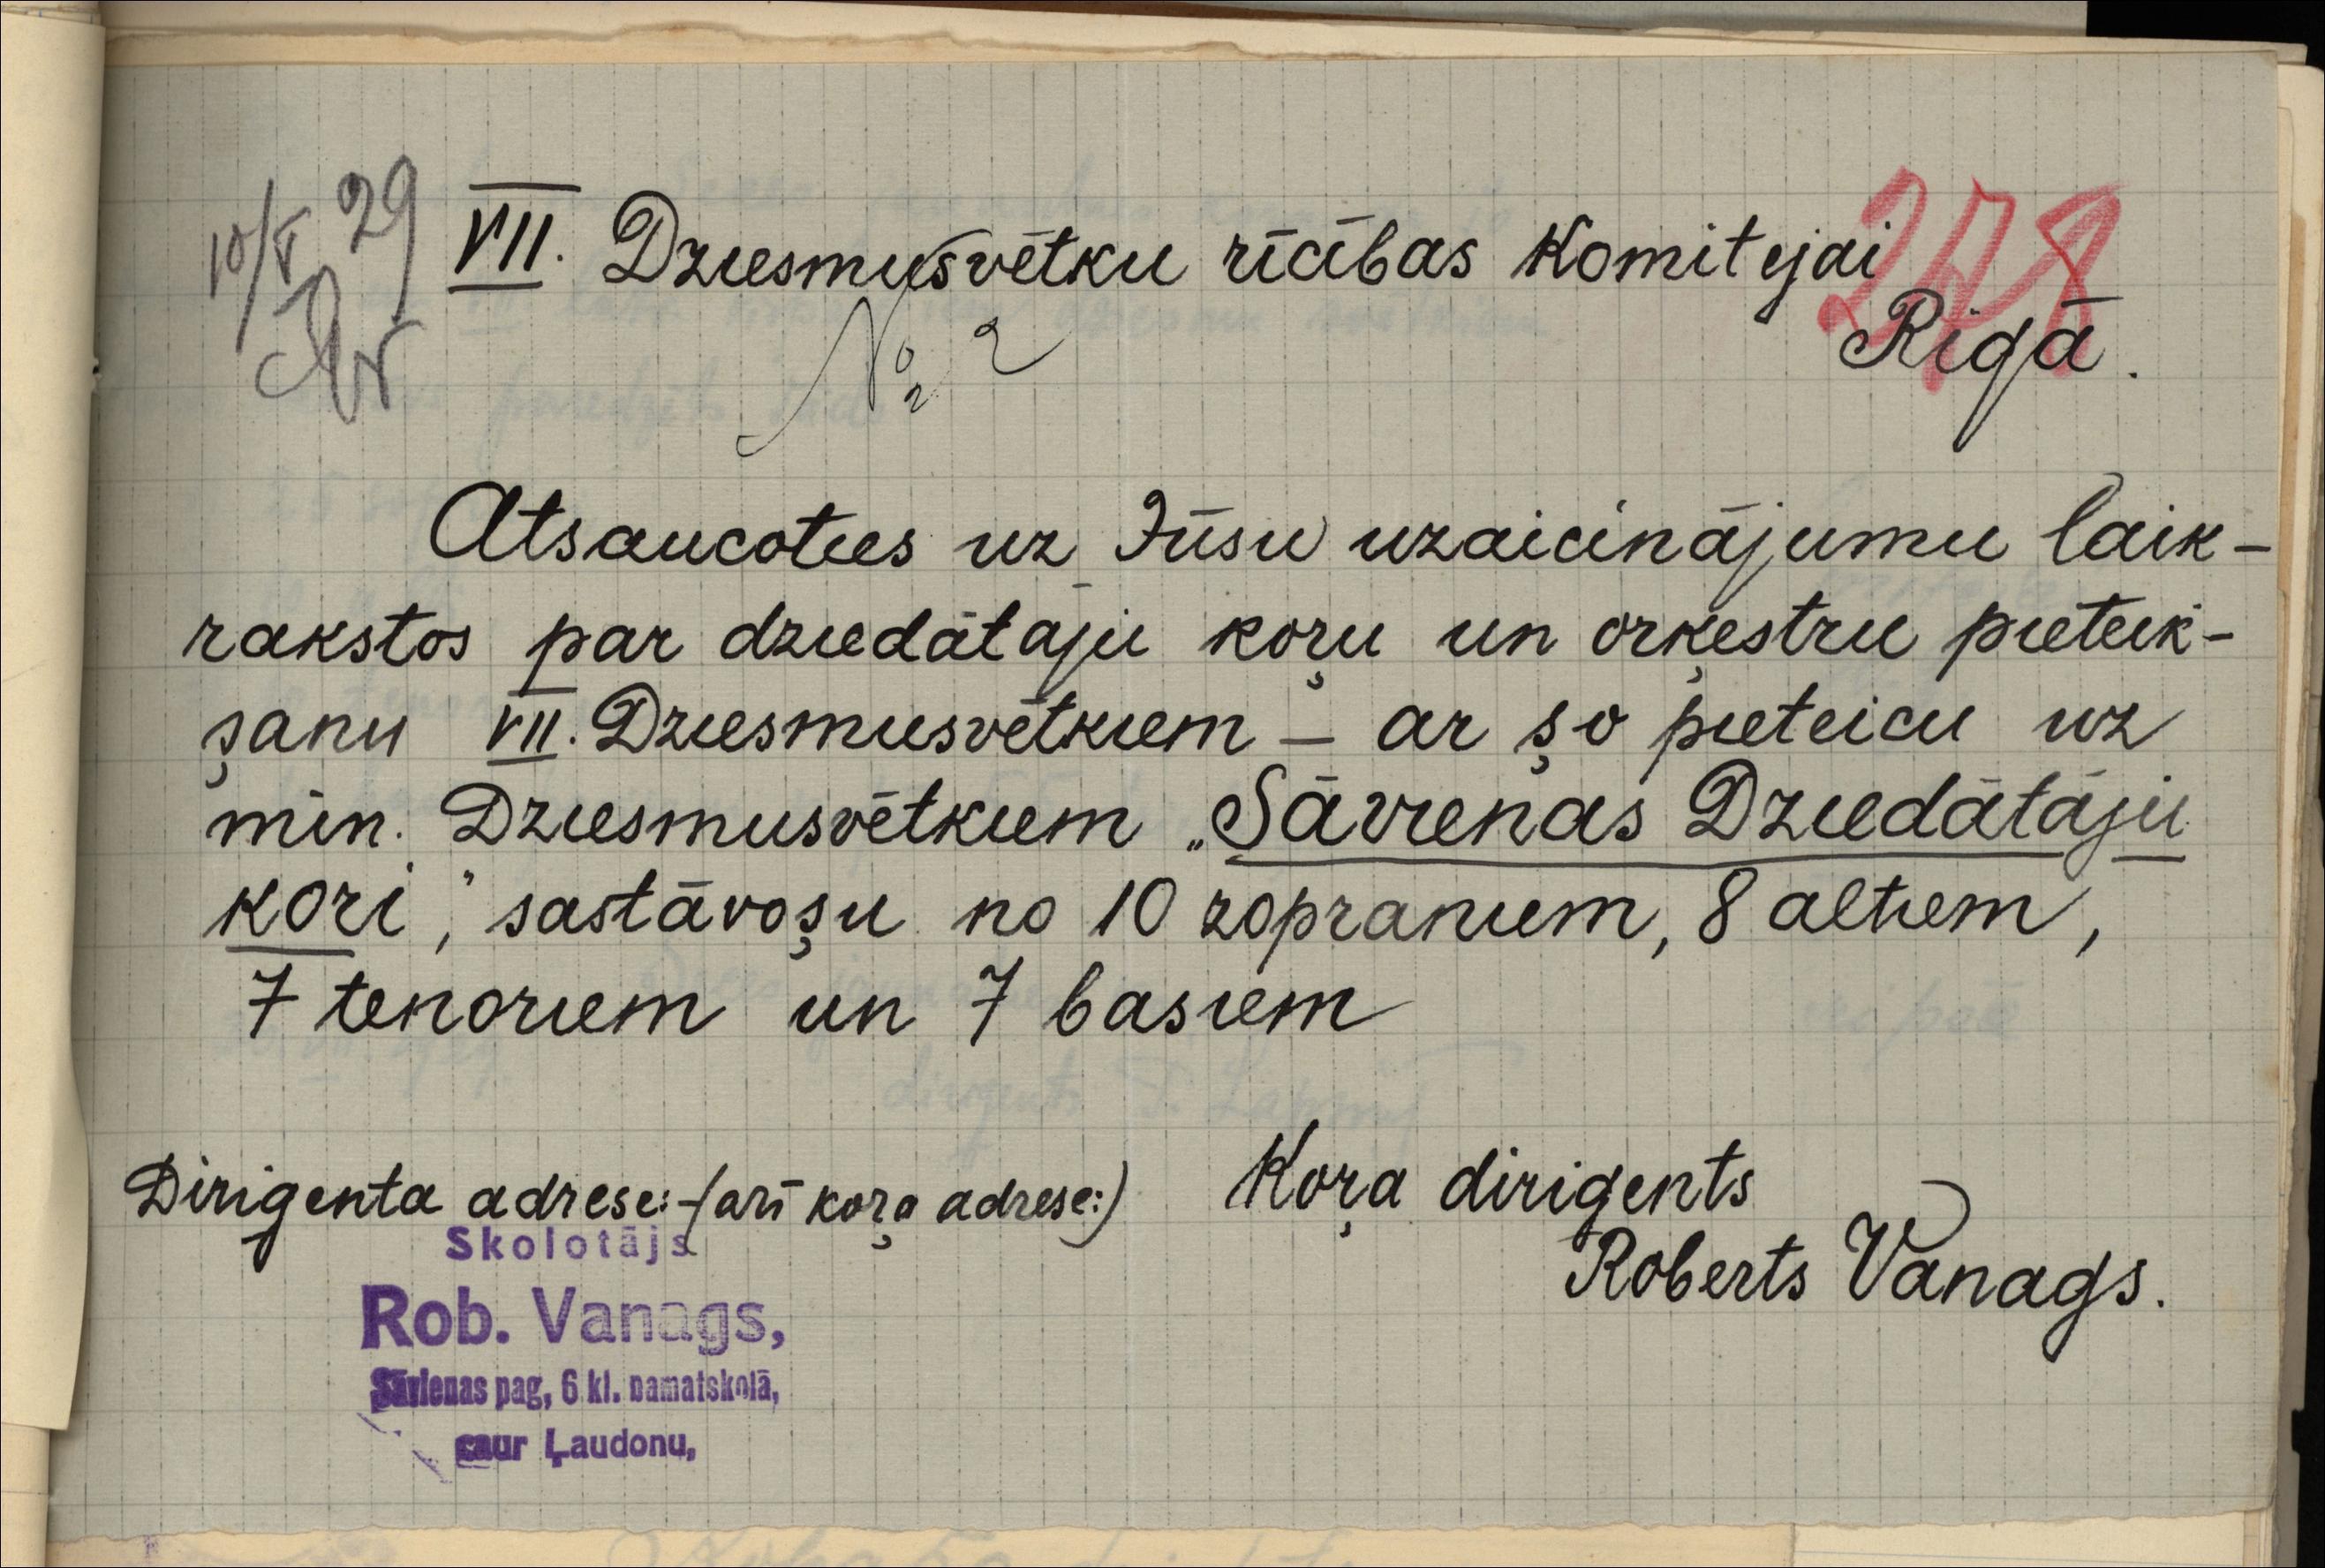 10/V 29
VII. Dziesmusvētku rīcības Komitejai
278
Rīgā.
№ 2
Atsaucoties uz Jūsu uzaicinājumu laik-
rakstos par dziedātāju koŗu un orķestru pieteik-
şanu VII. Dziesmusvētkiem – ar şo pieteicu uz
min. Dziesmusvētkiem „Sāvienas Dziedātāju
kori", sastāvoşu no 10 zopraniem, 8 altiem,
7 tenoriem un 7 basiem
Dirigenta adrese:-(arī koŗa adrese:)
Koŗa dirigents
Roberts Vanags.
Skolotājs
Rob. Vanags,
Sāvienas pag, 6 kl. pamatskolā,
caur Ļaudonu,